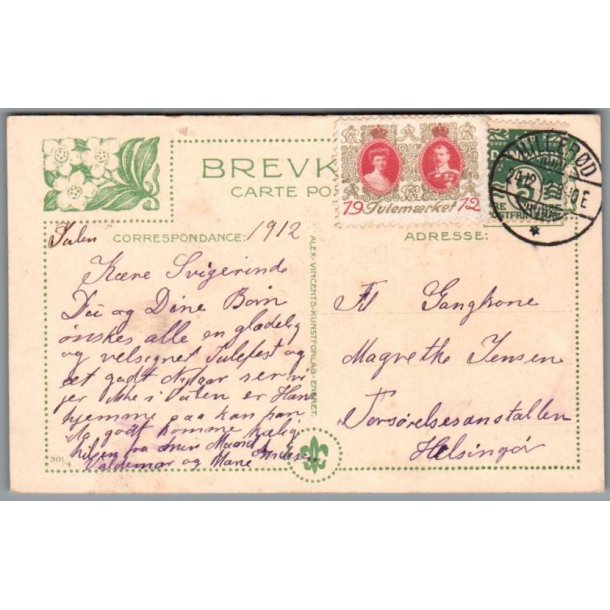 BREVK
CARTE POS
19 Julemærket 12
HILLERØD
Julen CORRESPONDANCE: 1912
ADRESSE:
Kære Svigerinde
Du og Dine Børn
ønskes alle en glædelig
og velsignet Julefest og
et godt Nytaar ser vi
jer ikke i Julen er Hans
hjemme saa kan han
da godt komme kærlig
hilsen fra Mand
Valdemar og Marie Andersen
ALEX. VINCENTS KUNSTFORLAG - ENERET.
Gangkone
Magrethe Jensen
Forsørelsesanstallen
Helsingør
301